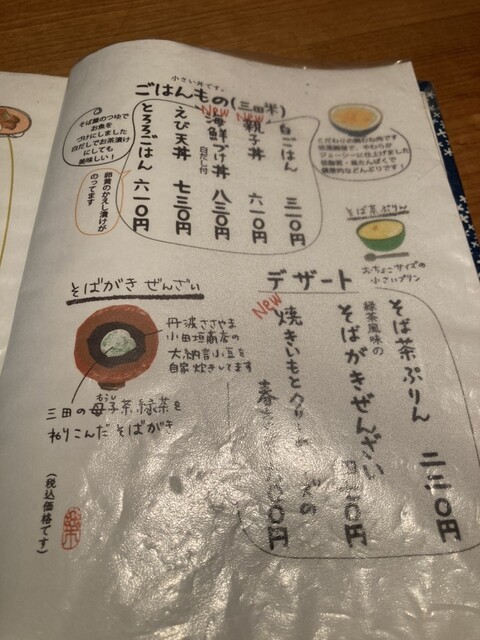 小さい丼です。
ごはんもの(三田米)
白ごはん 三一〇円
New
親子丼 六一〇円
New
海鮮づけ丼 八三〇円
白だし付
えび天丼 七三〇円
とろろごはん 六一〇円
そば屋のつゆで
お魚を
づけにしました
白だしでお茶漬け
にしても
美味しい!
卵黄のかえし漬けが
のってます
こだわりの鶏むね肉です
やわらか
ジューシーに仕上げました
低脂質・高たんぱくで
健康的などんぶりです!
そば茶ぷりん
おちょこサイズの
小さいプリン
デザート
そば茶ぷりん 二二〇円
緑茶風味の
そばがきぜんざい
円
New
焼きいもとクリー
の
円
そばがき ぜんざい
丹波ささやま
小田垣商店の
大納言小豆を
自家炊きしてます
三田の母子茶緑茶を
おうし
ねりこんだ そばがき
(税込価格です)